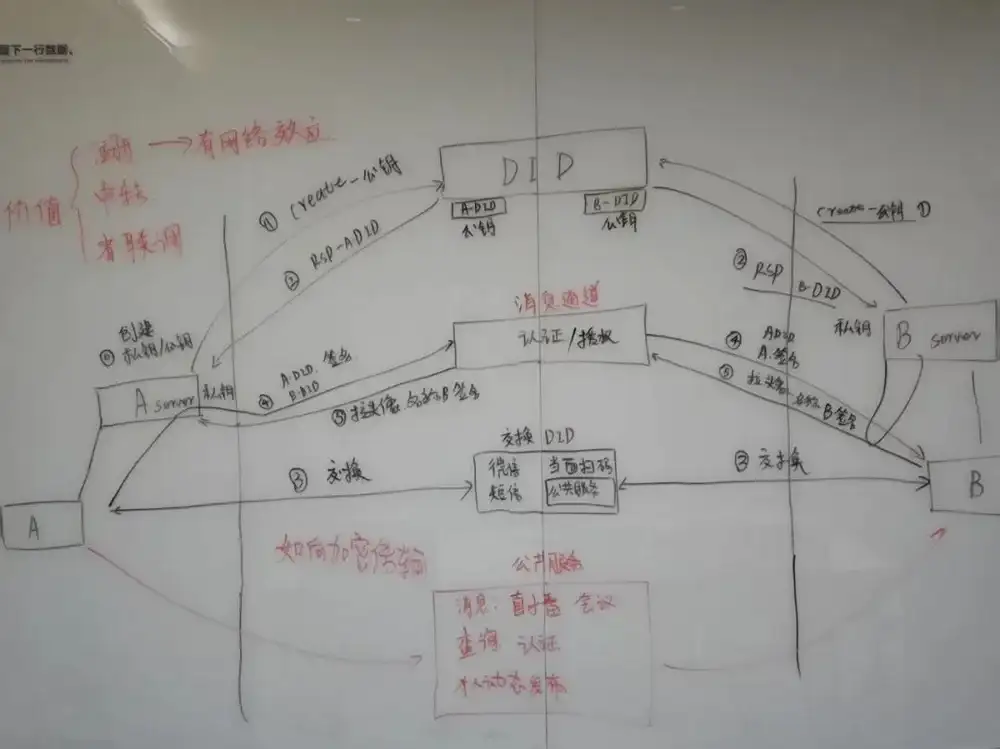 下一行数据、
价值
→有网络效应
① Create-公钥
② RSP-ADID
DID
A-DID
公钥
B-DID
公钥
Create-公钥 ①
② RSP
B-DID
消息通道
认证/授权
⓪ 创建
私钥/公钥
A server
私钥
④ A-DID 签名
B-DID
⑤ 拉头像 名称 B签名
④ ADID
A签名
⑤ 拉头像 名称 B签名
私钥
B server
交换 DID
微信
短信
当面扫码
公共服务
③ 交换
③ 交换
A
B
如何加密传输
公共服务
消息: 会议
查询 认证
个人动态发布